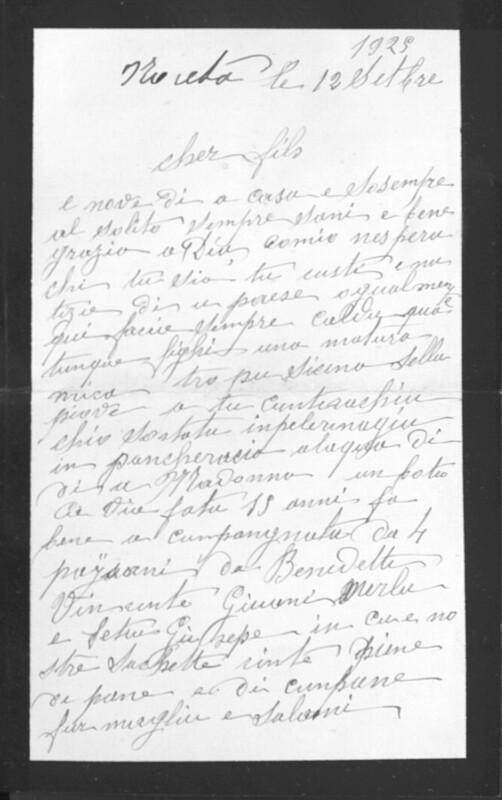 1925
le 12 Settbre
cher fils
e nove di a casa e so sempre
al solito sempre sani e bene
grazia a Dia comio nespera
chi tu sia tu custi e nu
tizie di u paese ogualmen
qui face sempre caldu quan
tunque fighi una matura
mica tro pu sicuno sella
piove a tu
chio so statu inpelerinagiu
in pancheracio
di a Madonna un
Dia fatu 15 anni fa
bene a cumpangnatu da 4
paysani da Benedettu
Vincente Giuvani Merlu
e Setru Giusepe in cu e no
stre Sachette cinte piene
di pane e di cumpane
furmagliu e salami